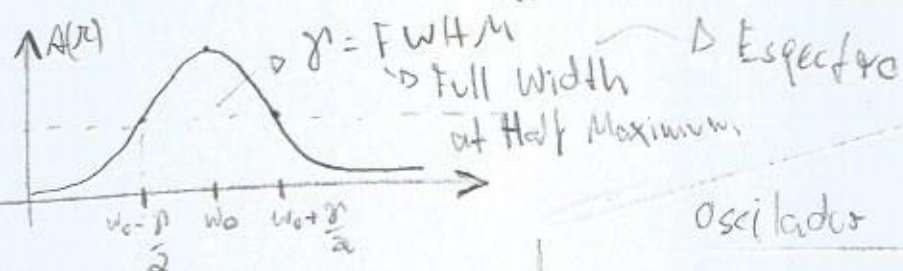 A(Ω)
γ = FWHM
Full Width
at Half Maximum.
Espectro
ω₀ - γ/2 ω₀ ω₀ + γ/2
Oscilador